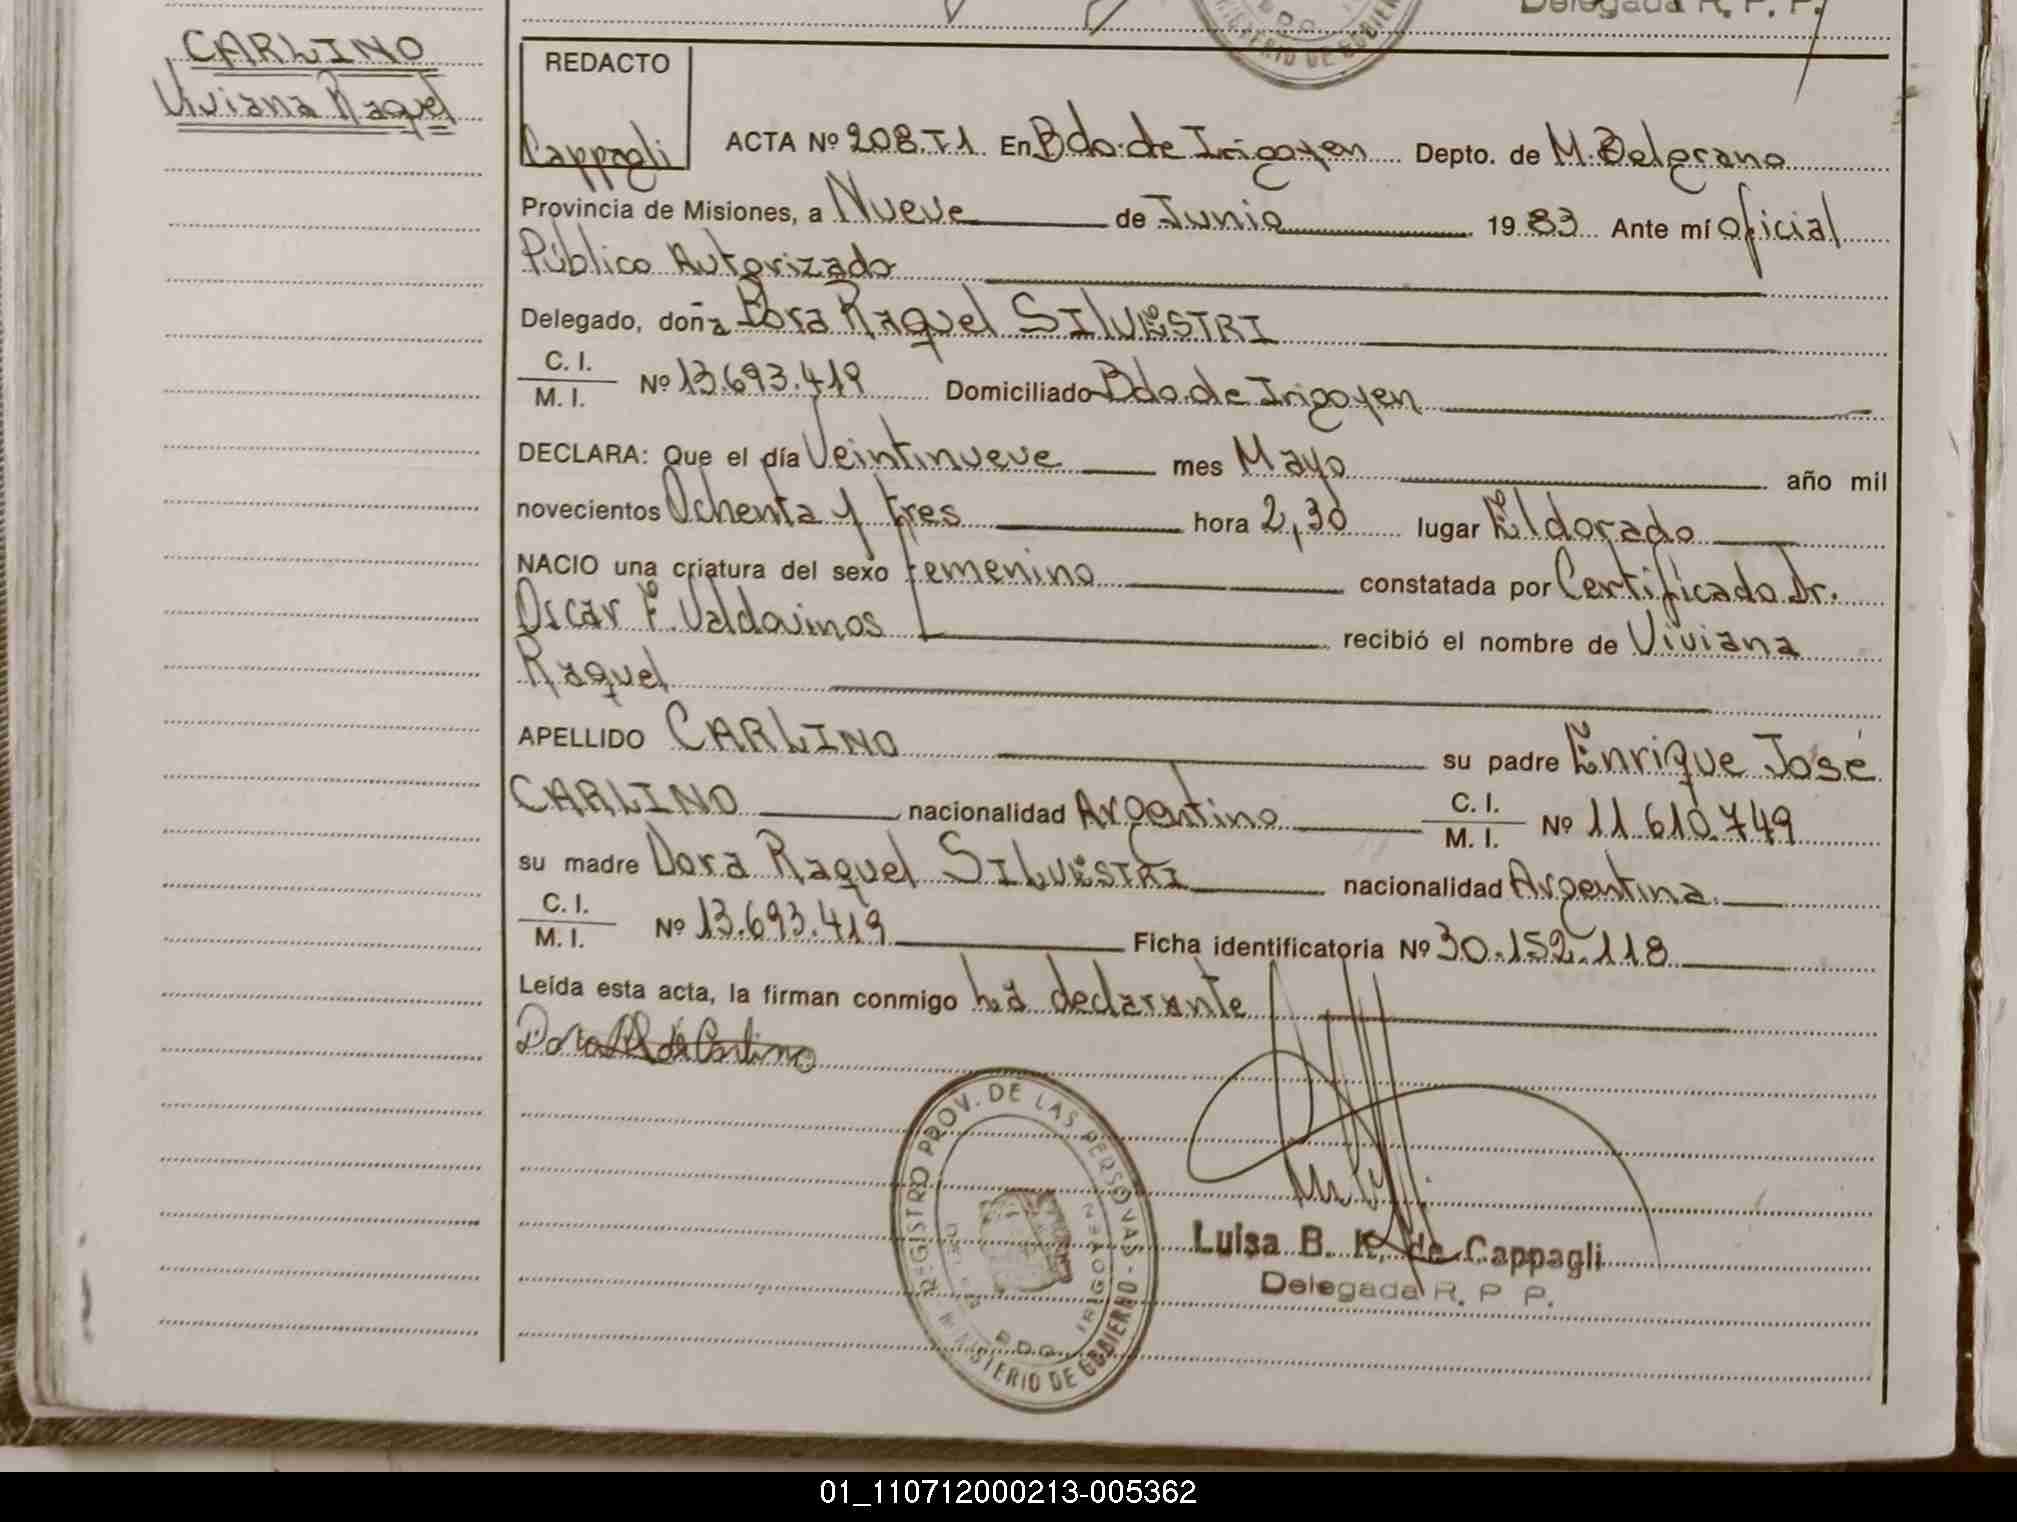 Delegada R. P. P.
MINISTERIO DE GOBIERNO
CARLINO
Viviana Raquel
REDACTO
Cappagli
ACTA Nº 208.T1 En Bdo. de Irigoyen Depto. de M. Belgrano
Provincia de Misiones, a Nueve de Junio 1983 Ante mí Oficial
Público Autorizado
Delegado, doña Dora Raquel SILVESTRI
C. I.
M. I. Nº 13.693.419 Domiciliado Bdo. de Irigoyen
DECLARA: Que el día Veintinueve mes Mayo año mil
novecientos Ochenta y tres hora 2,30 lugar Eldorado
NACIO una criatura del sexo femenino constatada por Certificado Dr.
Oscar F. Valdovinos recibió el nombre de Viviana
Raquel
APELLIDO CARLINO su padre Enrique José
CARLINO nacionalidad Argentino C. I.
M. I. Nº 11.610.749
su madre Dora Raquel SILVESTRI nacionalidad Argentina.
C. I.
M. I. Nº 13.693.419 Ficha identificatoria Nº 30.152.118
Leída esta acta, la firman conmigo La declarante
Dora de Carlino
REGISTRO PROV. DE LAS PERSONAS - MINISTERIO DE GOBIERNO
BDO. IRIGOYEN
Luisa B. K. de Cappagli
Delegada R. P. P.
01_110712000213-005362